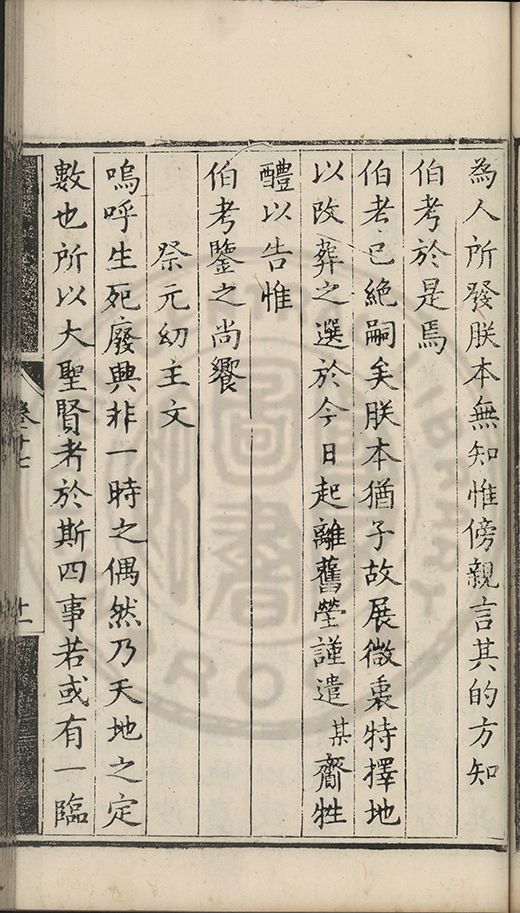 為人所發朕本無知惟傍親言其的方知
伯考於是焉
伯考已絕嗣矣朕本猶子故展微衷特擇地
以改葬之選於今日起離舊塋謹遣某齎牲
醴以告惟
伯考鑒之尚饗
祭元幼主文
嗚呼生死廢興非一時之偶然乃天地之定
數也所以大聖賢考於斯四事若或有一臨
卷十七
十一